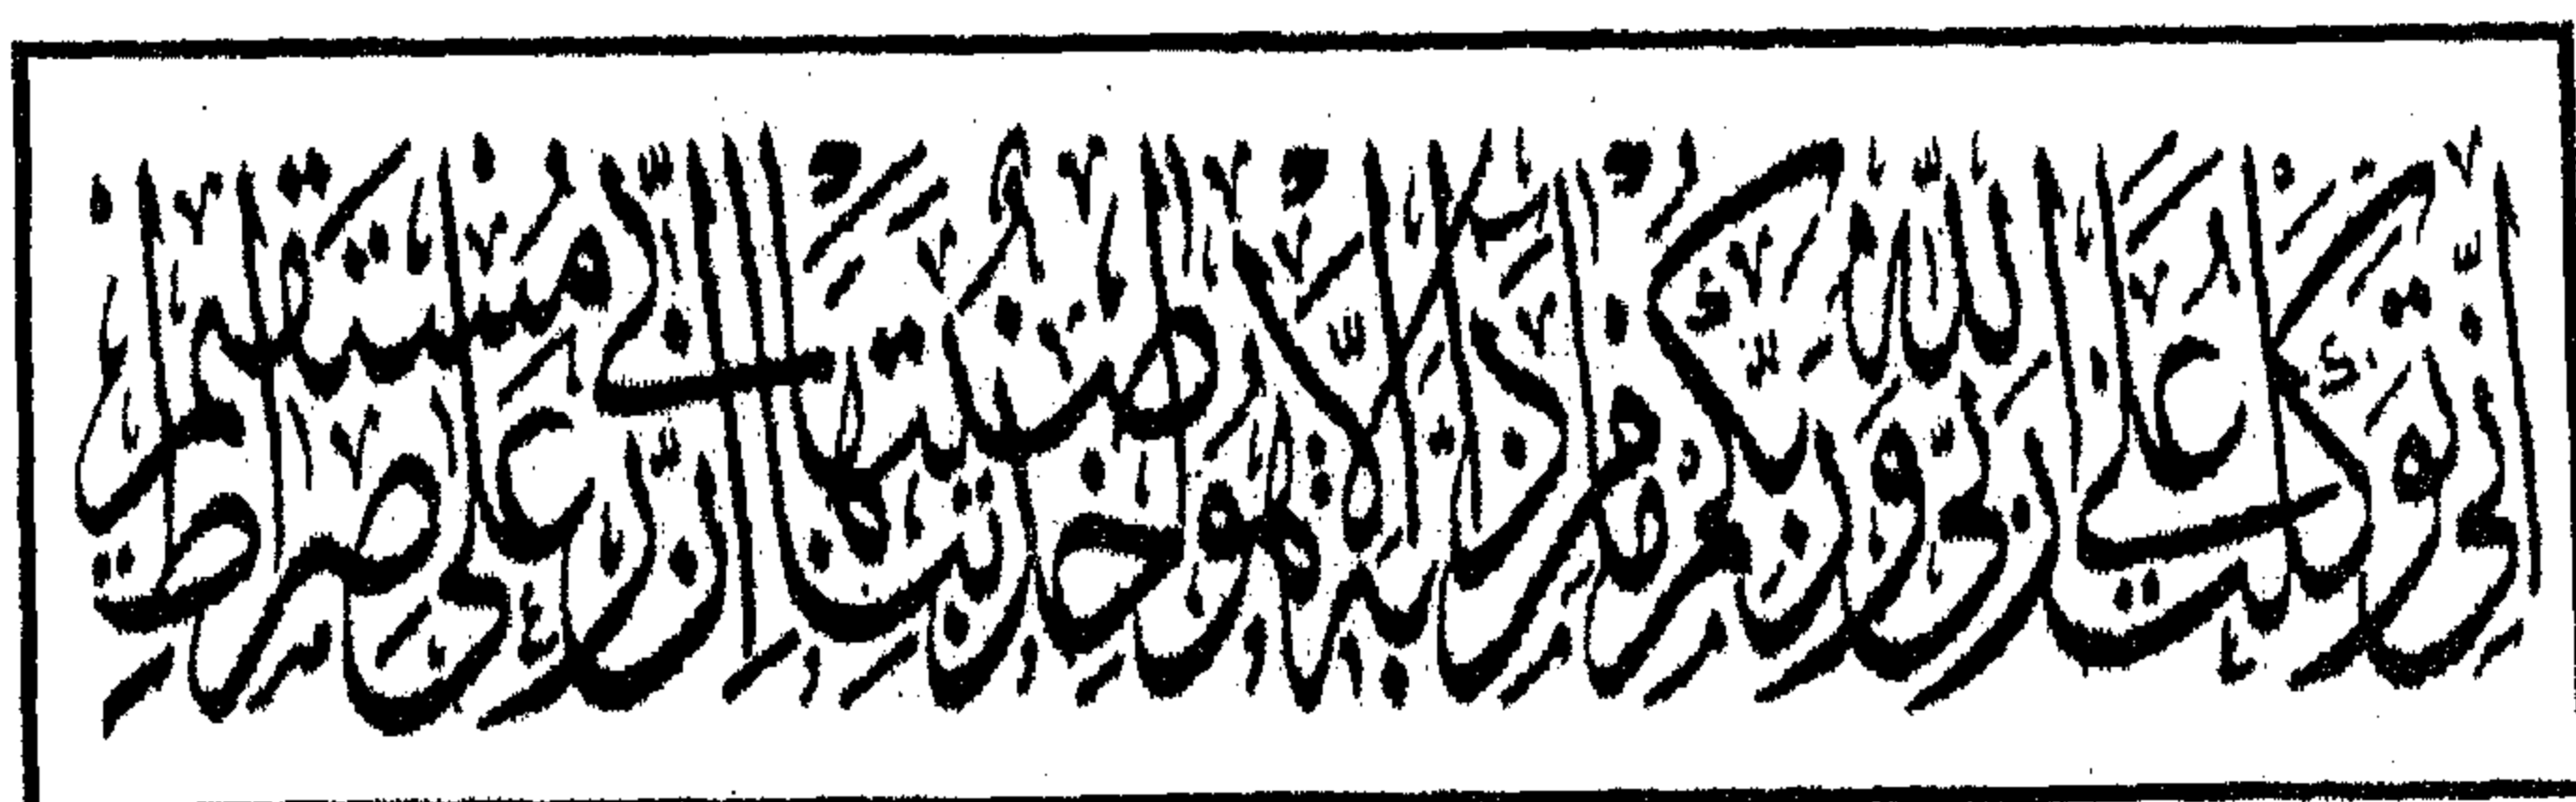 إِنِّي تَوَكَّلْتُ عَلَى اللَّهِ رَبِّي وَرَبِّكُمْ مَا مِنْ دَابَّةٍ إِلَّا هُوَ آخِذٌ بِنَاصِيَتِهَا إِنَّ رَبِّي عَلَى صِرَاطٍ مُسْتَقِيمٍ